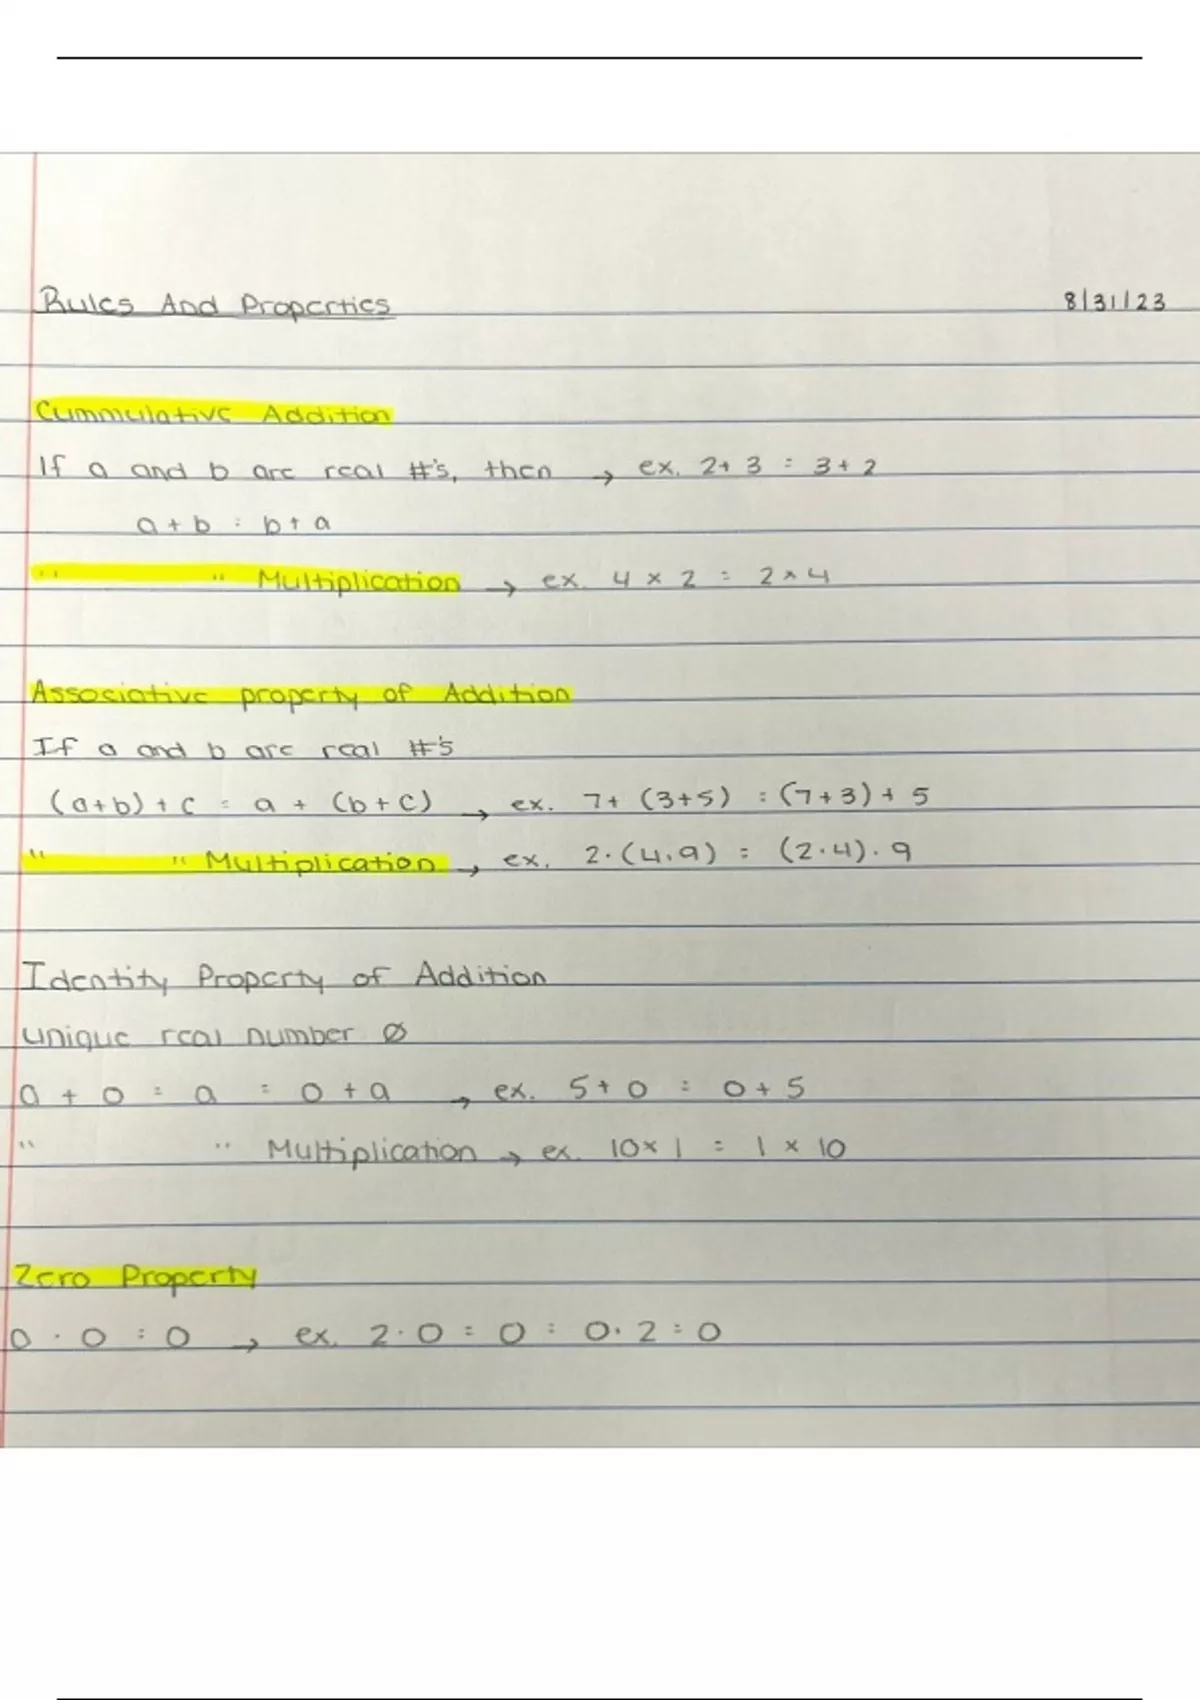 Rules And Properties 8/31/23
Cummulative Addition
If a and b are real #'s, then → ex. 2+3 = 3+2
a+b = b+a
" " Multiplication → ex. 4 x 2 = 2 x 4
Associative property of Addition
If a and b are real #'s
(a+b)+c = a + (b+c) → ex. 7+ (3+5) = (7+3)+ 5
" " Multiplication → ex. 2·(4·9) = (2·4)·9
Identity Property of Addition
unique real number Ø
a + 0 = a = 0 + a → ex. 5+0 = 0+5
" " Multiplication → ex. 10x1 = 1 x 10
Zero Property
0 · 0 = 0 → ex. 2·0 = 0 = 0·2 = 0